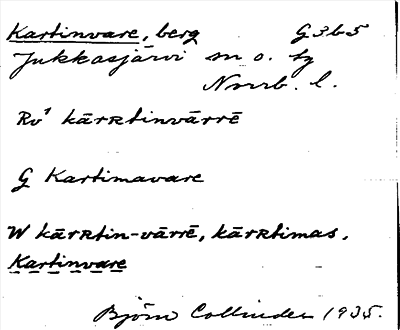 Kartinvare, berg G3b5
Jukkasjärvi sn o. tg
Nrrb. l.
Rv¹ kārʀtinvārrē
G Kartimavare
W kārʀtin-vārrē, kārʀtimas.
Kartinvare
Björn Collinder 1935.